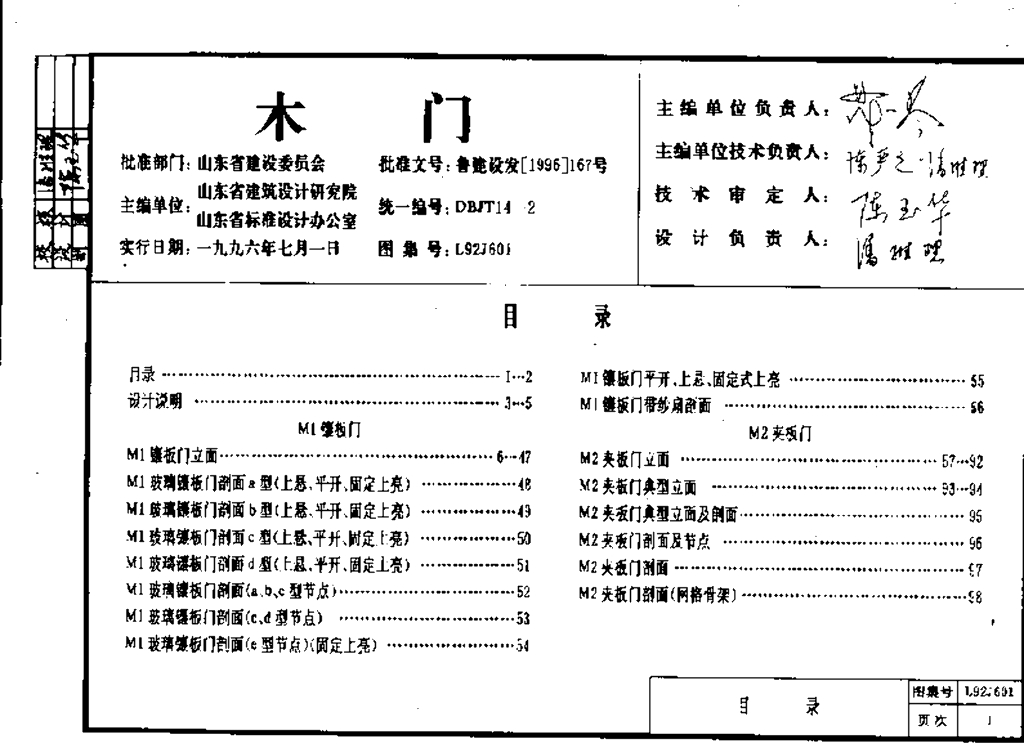 木 门
批准部门：山东省建设委员会
主编单位：山东省建筑设计研究院
山东省标准设计办公室
实行日期：一九九六年七月一日
批准文号：鲁建设发[1996]167号
统一编号：DBJT14-2
图集号：L92J601
主编单位负责人：
主编单位技术负责人：
技术审定人：陈玉华
设计负责人：
目 录
目录 1--2
设计说明 3--5
M1镶板门
M1镶板门立面 6--47
M1玻璃镶板门剖面a型(上悬、平开、固定上亮) 48
M1玻璃镶板门剖面b型(上悬、平开、固定上亮) 49
M1玻璃镶板门剖面c型(上悬、平开、固定上亮) 50
M1玻璃镶板门剖面d型(上悬、平开、固定上亮) 51
M1玻璃镶板门剖面(a、b、c型节点) 52
M1玻璃镶板门剖面(c、d型节点) 53
M1玻璃镶板门剖面(e型节点)(固定上亮) 54
M1镶板门平开、上悬、固定式上亮 55
M1镶板门带纱扇剖面 56
M2夹板门
M2夹板门立面 57--92
M2夹板门典型立面 93--94
M2夹板门典型立面及剖面 95
M2夹板门剖面及节点 96
M2夹板门剖面 97
M2夹板门剖面(网格骨架) 98
目 录
图集号 L92J601
页次 1